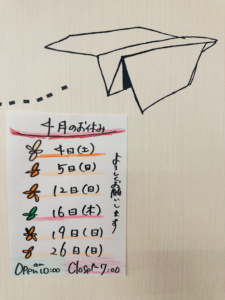 4月のお休み
4日(土)
5日(日)
12日(日)
16日(木)
19日(日)
26日(日)
よろしくお願いします!
Open am10:00 Close PM7:00